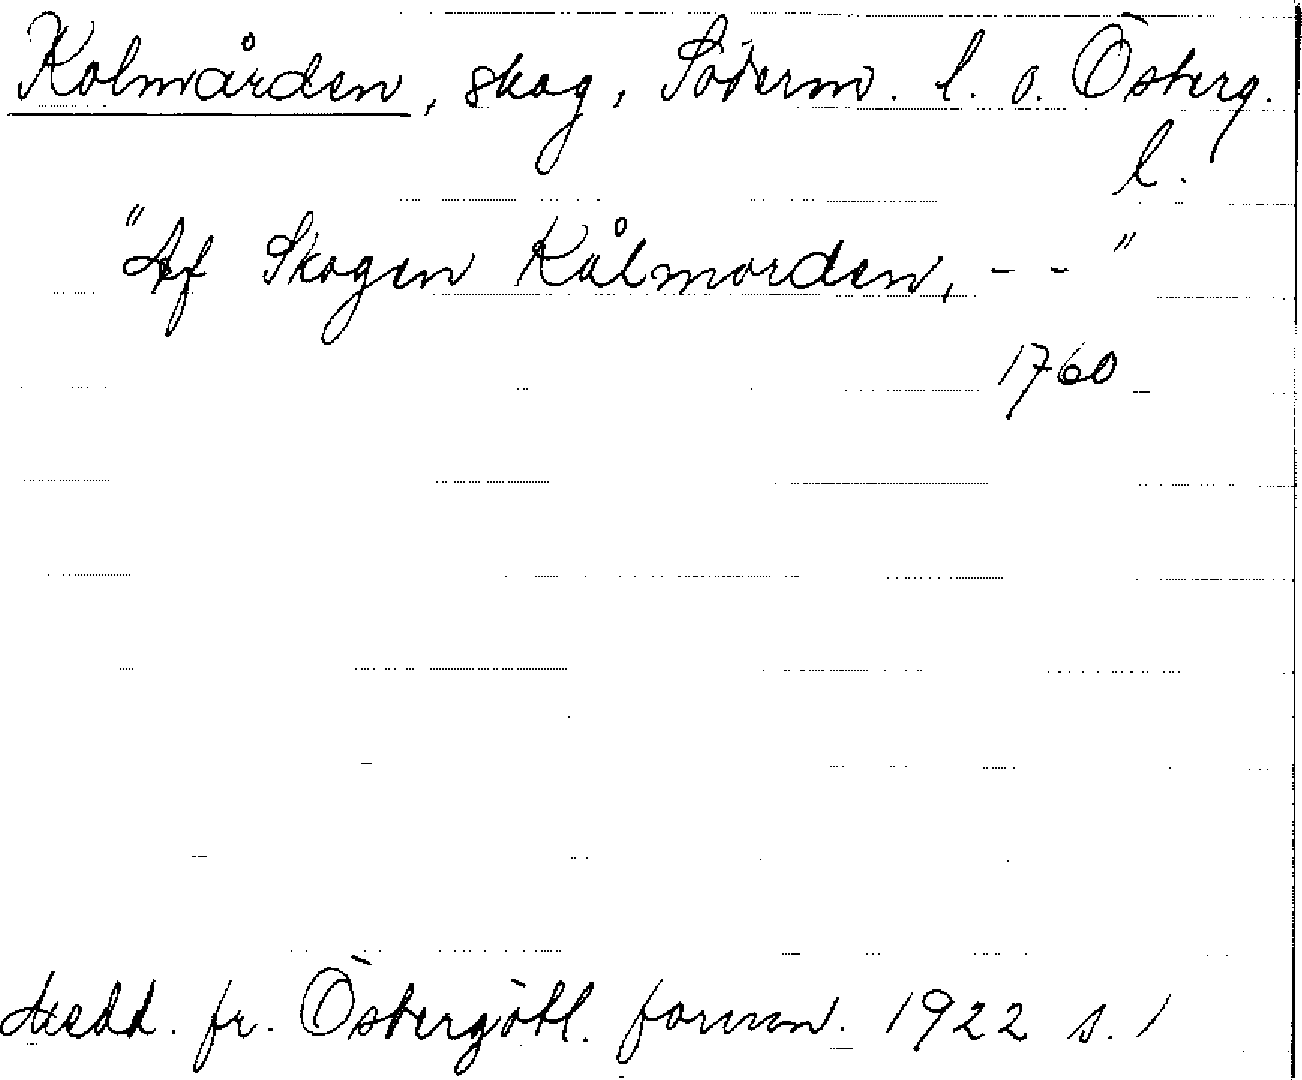 Kolmården, skog, Söderm. l. o. Österg.
l.
"Af Skogen Kålmorden, - - "
1760
Medd. fr. Östergötl. fornm. 1922 s. 1